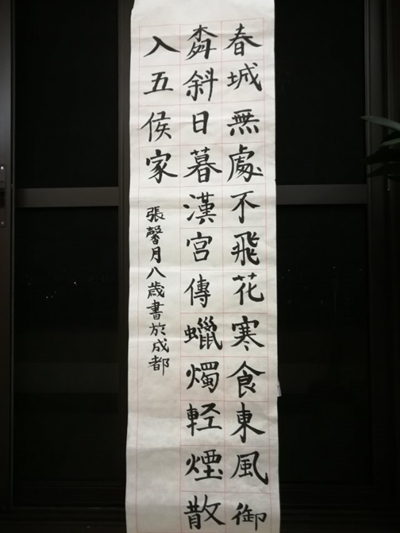 春城無處不飛花寒食東風御
柳斜日暮漢宮傳蠟燭輕煙散
入五侯家
張馨月八歲書於成都